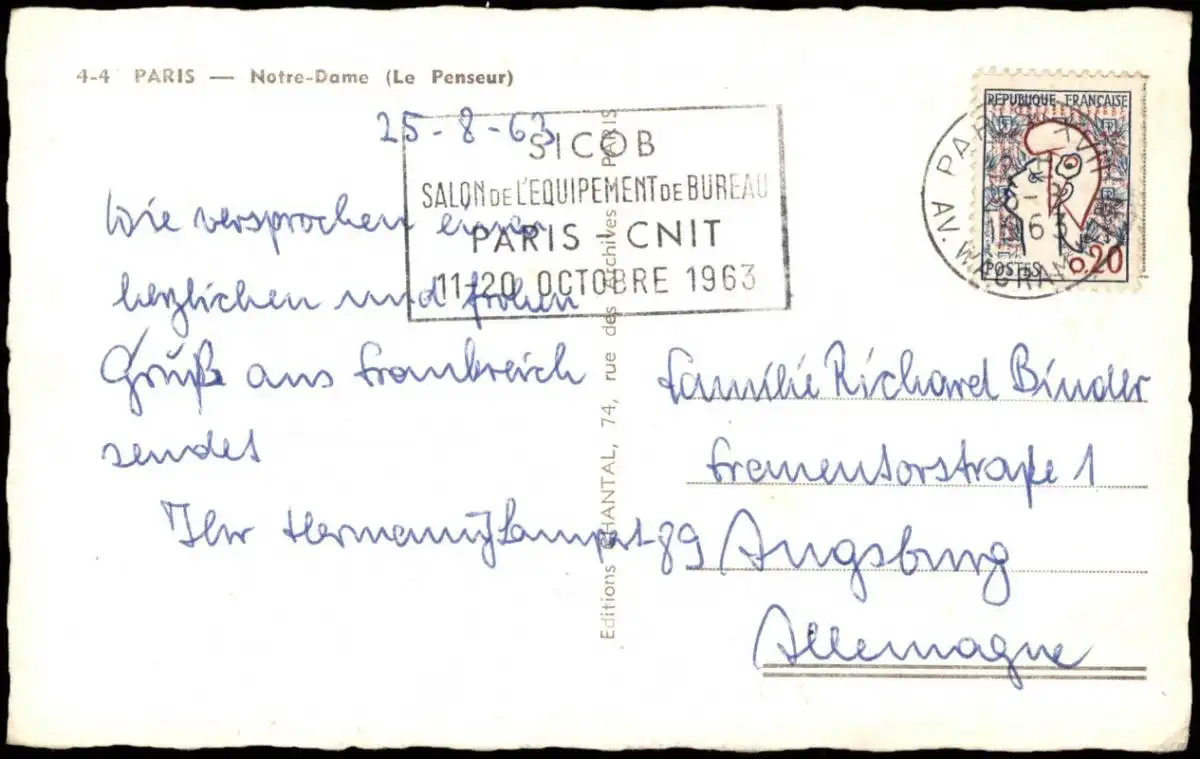 4-4 PARIS — Notre-Dame (Le Penseur)
25-8-63
SICOB
SALON DE L'EQUIPEMENT DE BUREAU
PARIS - CNIT
11-20 OCTOBRE 1963
REPUBLIQUE FRANÇAISE
POSTES 0.20
PARIS XVII
AV. WAGRAM
1963
Wie versprochen einen
herzlichen und frohen
Gruß aus Frankreich
sendet
Ihr Hermann
Editions CHANTAL, 74, rue des Archives PARIS
Familie Richard Binder
straße 1
89 Augsburg
Allemagne